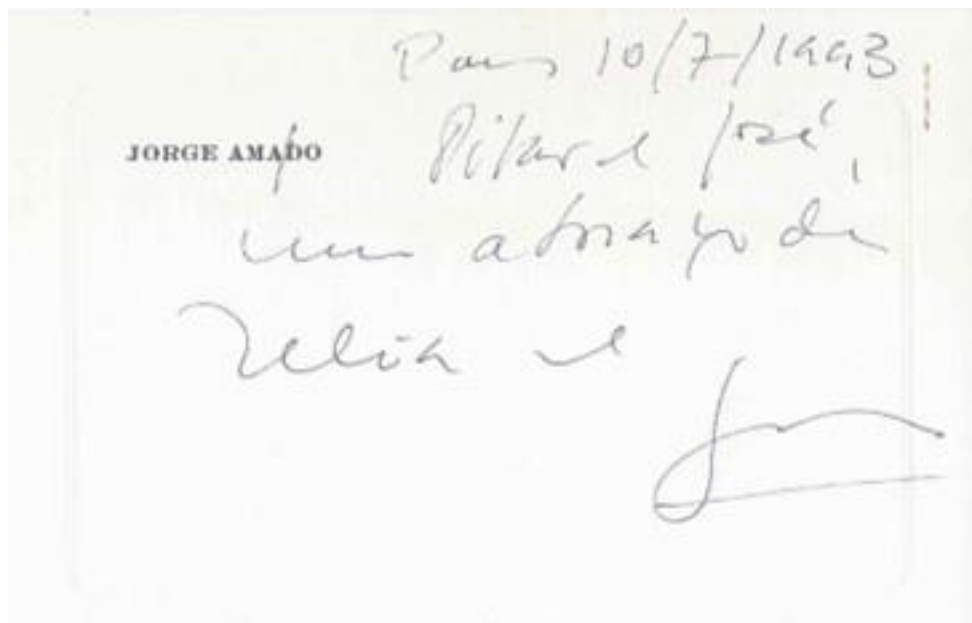 Paris 10/7/1993
JORGE AMADO
Pilar e José,
um abraço de
Zélia e
Jorge